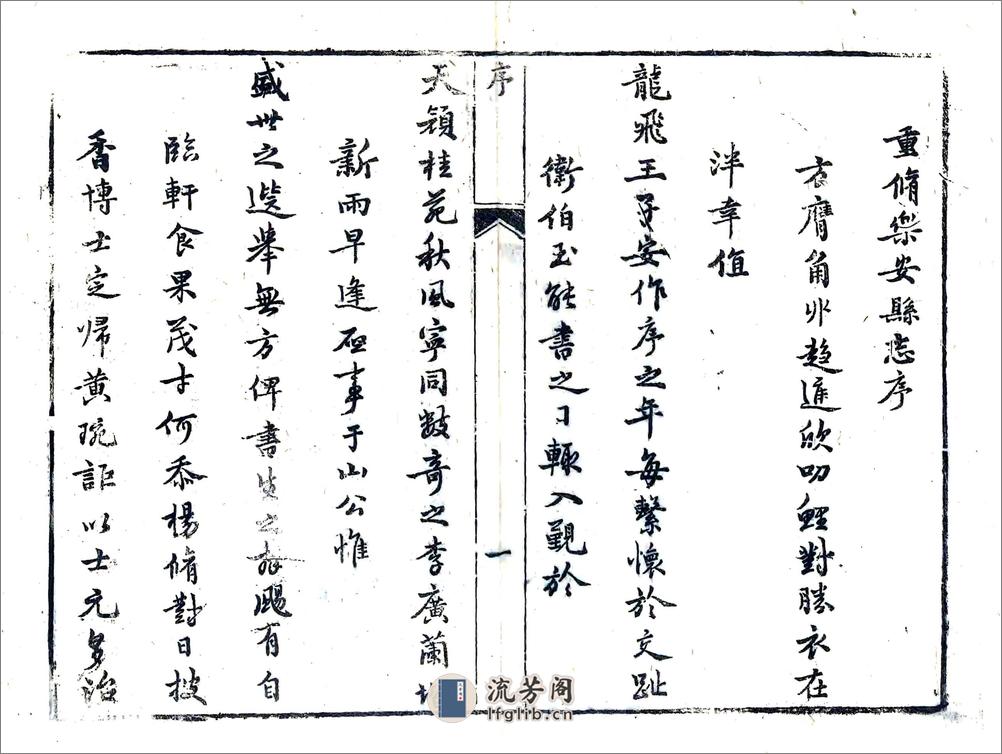 重脩樂安縣志序
膺角丱趨進欣叨鯉對勝衣在
泮幸值
龍飛王子安作序之年每繫懷於交趾
衛伯玉能書之日輒入覲於
序
一
天顏桂苑秋風寧同數奇之李廣蘭
新雨早逢啟事于山公惟
盛世之選舉無方俾書生之颺有自
臨軒食果茂才何忝楊脩對日披
香博士定歸黃琬詎以士元多治
流芳阁
lfglib.cn